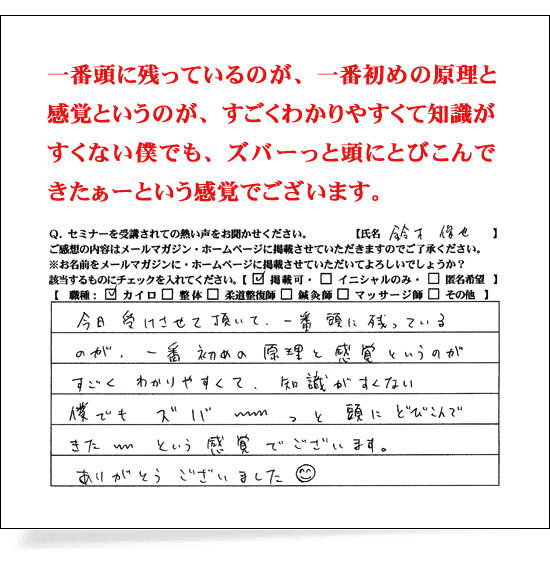 一番頭に残っているのが、一番初めの原理と
感覚というのが、すごくわかりやすくて知識が
すくない僕でも、ズバーっと頭にとびこんで
きたぁーという感覚でございます。
Q. セミナーを受講されての熱い声をお聞かせください。 【氏名 鈴木 俊也 】
ご感想の内容はメールマガジン・ホームページに掲載させていただきますのでご了承ください。
※お名前をメールマガジンに・ホームページに掲載させていただいてよろしいでしょうか？
該当するものにチェックを入れてください。【 ☑ 掲載可・ □ イニシャルのみ・ □ 匿名希望 】
【 職種： ☑ カイロ □ 整体 □ 柔道整復師 □ 鍼灸師 □ マッサージ師 □ その他 】
今日 受けさせて頂いて、一番頭に残っている
のが、一番初めの原理と感覚というのが
すごく わかりやすくて、知識がすくない
僕でも ズバ〰っと頭にとびこんで
きた〰という感覚でございます。
ありがとうございました☺